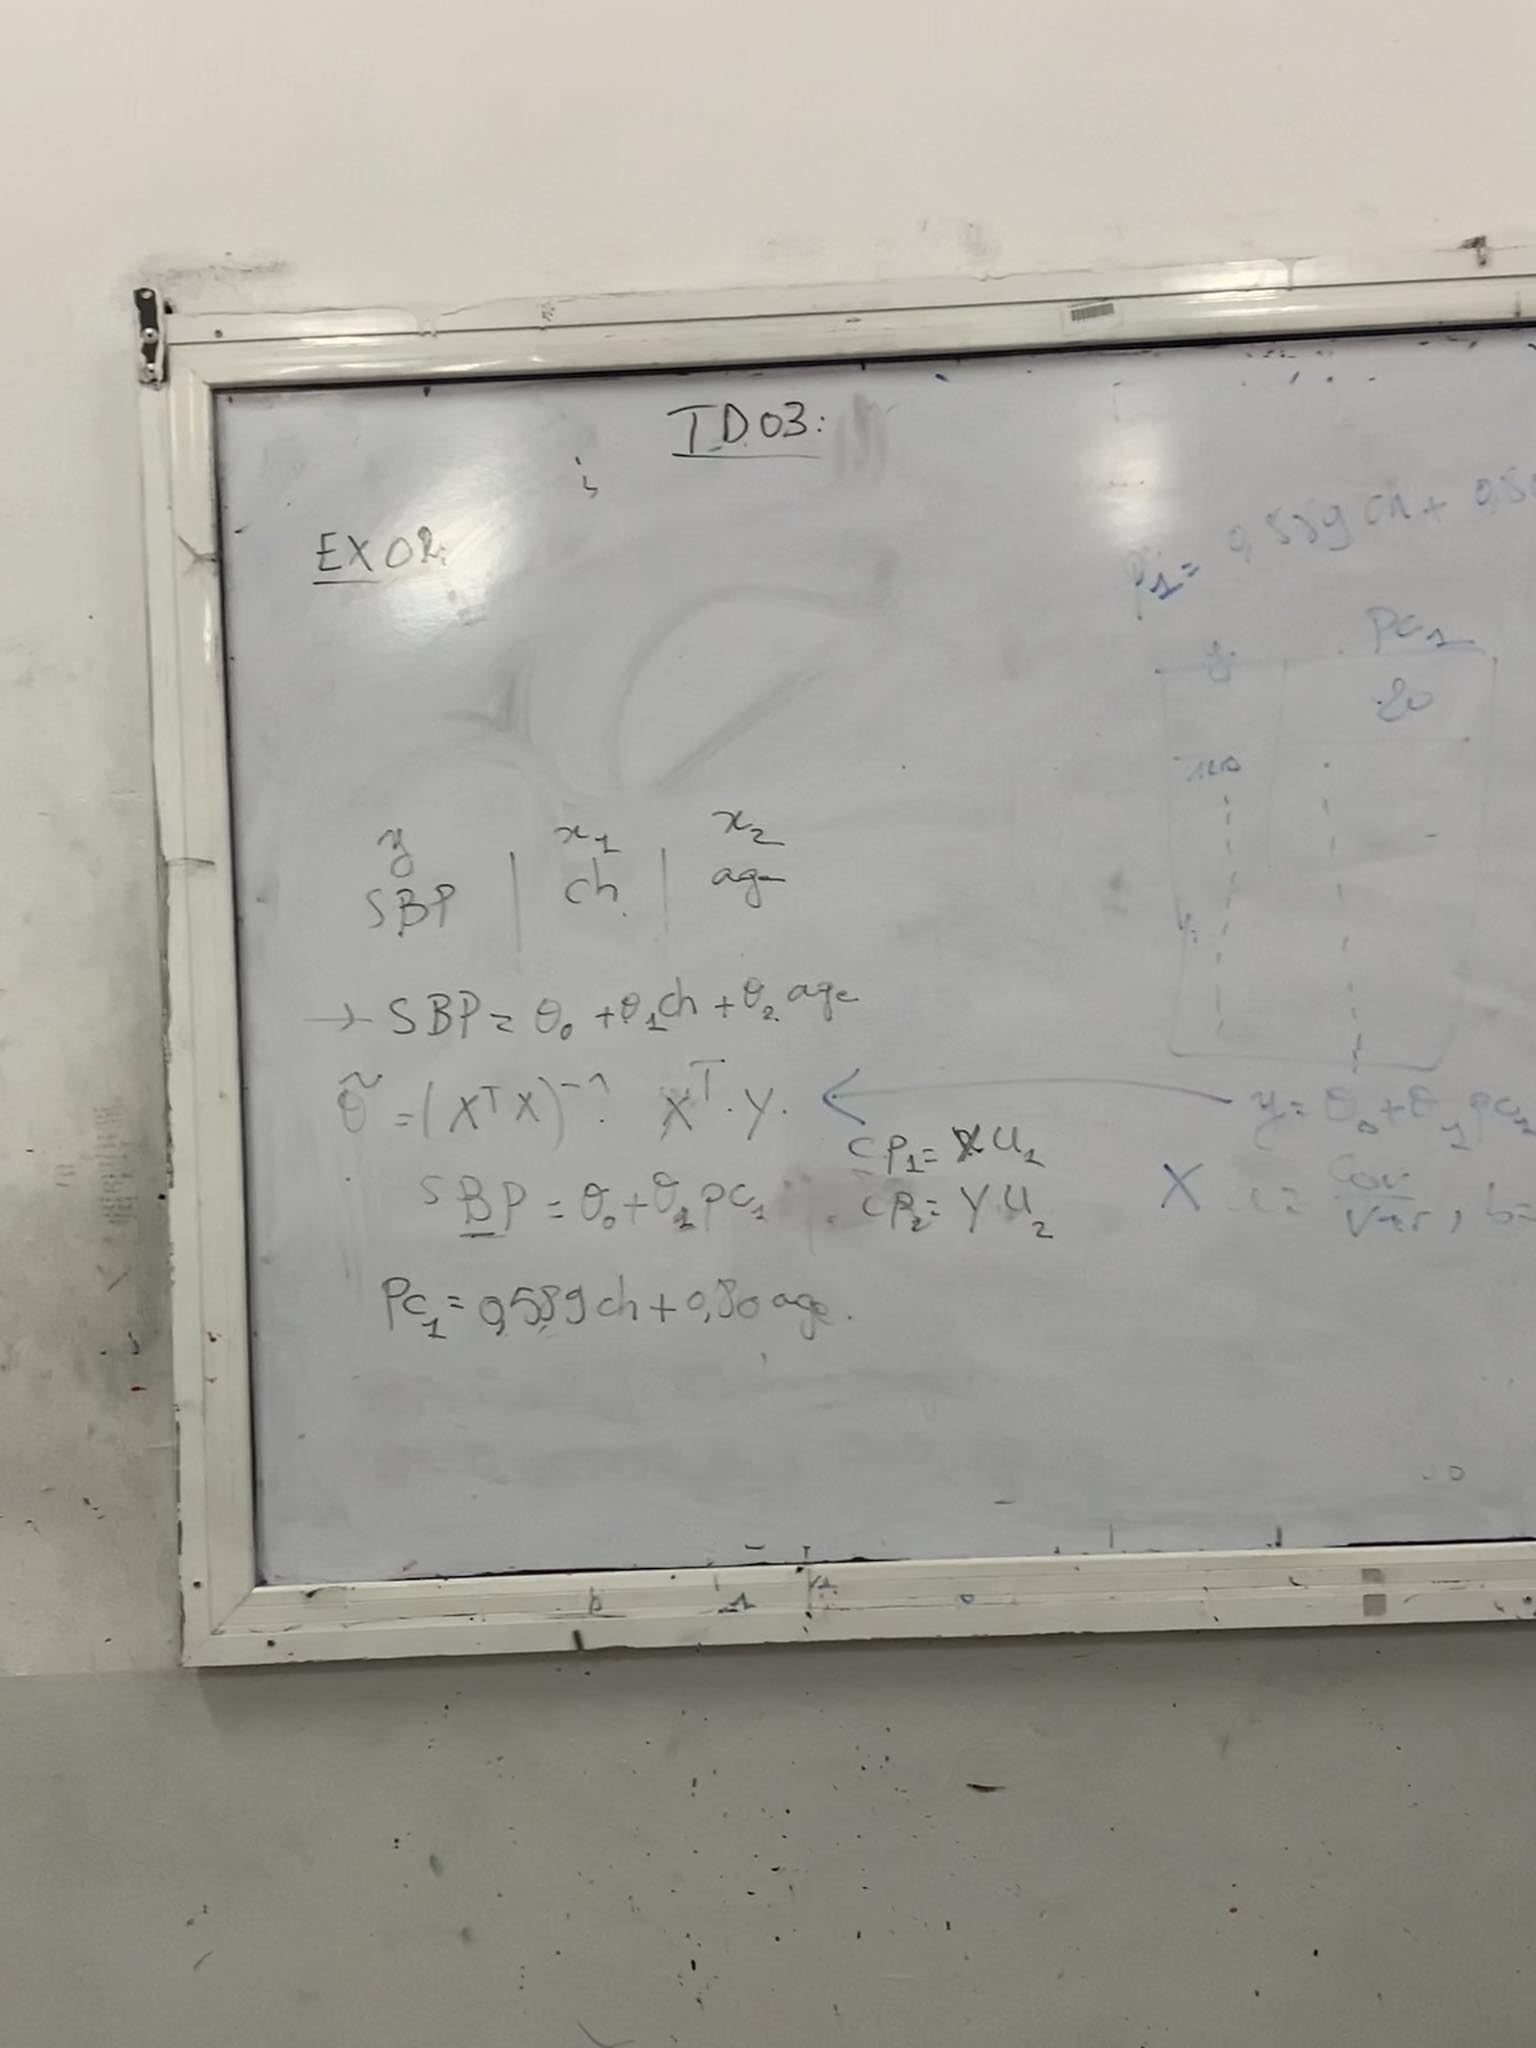 TD03:
EX02:
y | x₁ | x₂
SBP | ch | age
→ SBP = θ₀ + θ₁ch + θ₂ age
θ̃ = (XᵀX)⁻¹ Xᵀ.Y.
SBP = θ₀ + θ₁ PC₁
CP₁ = XU₁
CP₂ = YU₂
PC₁ = 0,589ch + 0,80 age.
P₁ = 0,589 ch + 0,8
y PC₁
20
y = θ₀ + θ₁ PC₁
X = Cov/Var, b=